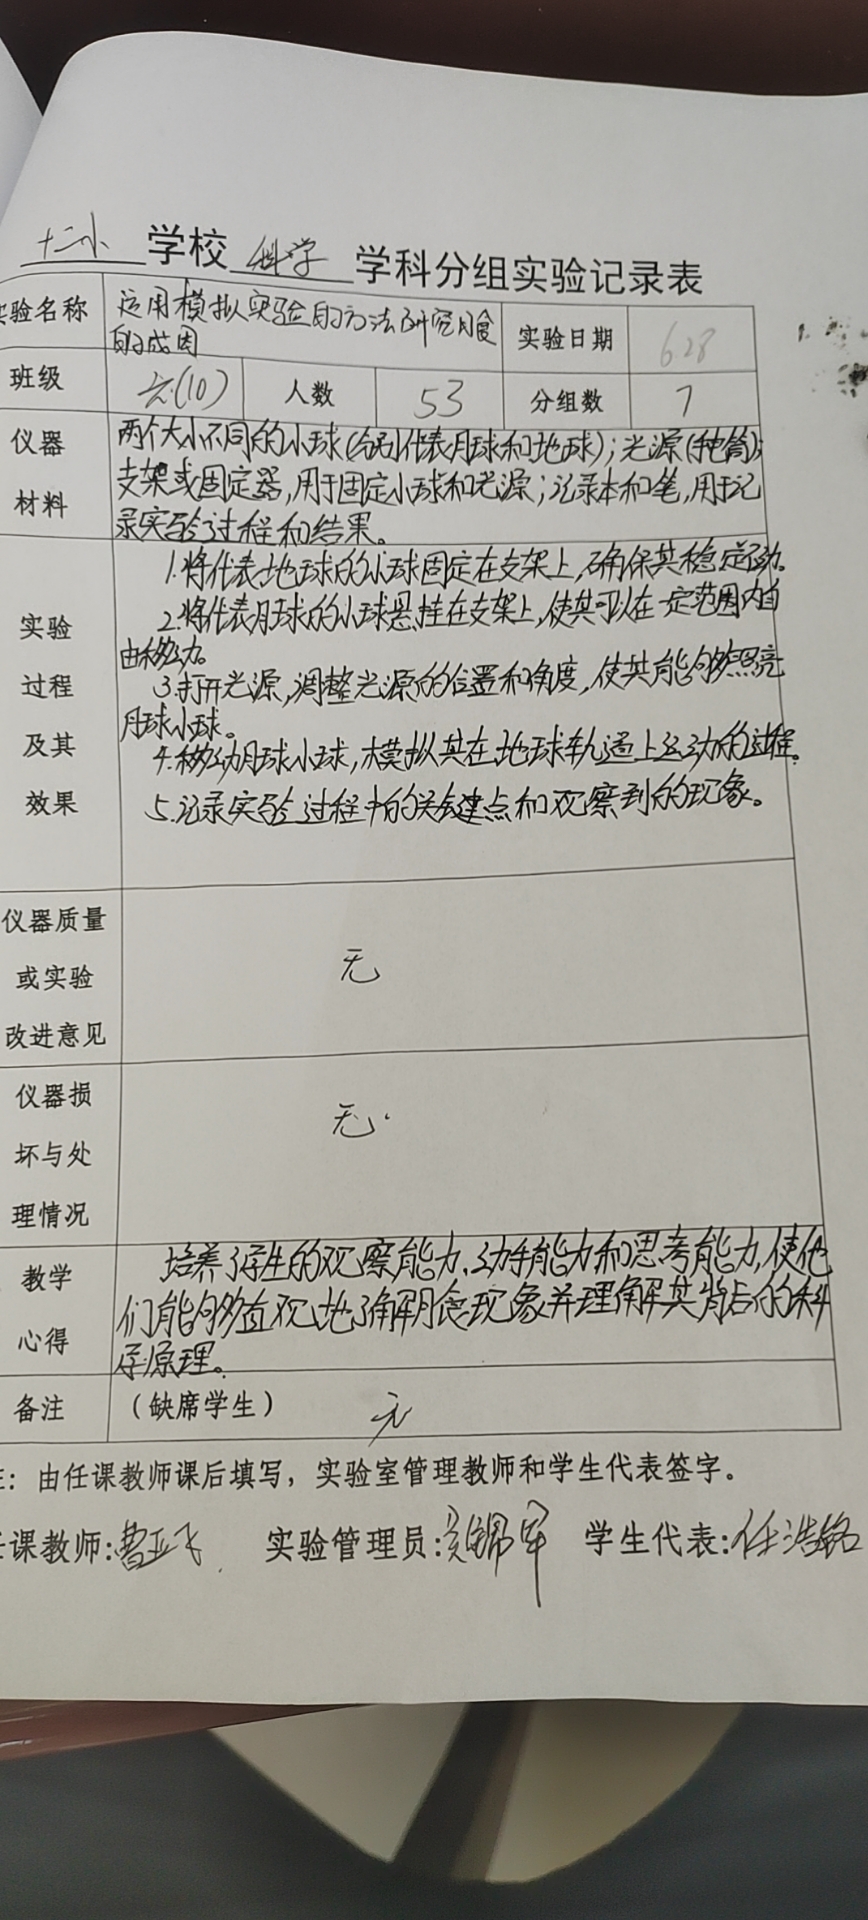 十二小 学校 科学 学科分组实验记录表
实验名称 运用模拟实验的方法研究月食的成因 实验日期 6.28
班级 六(10) 人数 53 分组数 7
仪器材料
两个大小不同的小球(分别代表月球和地球);光源(手电筒);
支架或固定器,用于固定小球和光源;记录本和笔,用于记
录实验过程和结果。
实验过程及其效果
1.将代表地球的小球固定在支架上,确保其稳定不动。
2.将代表月球的小球悬挂在支架上,使其可以在一定范围内自
由移动。
3.打开光源,调整光源的位置和角度,使其能够照亮
月球小球。
4.移动月球小球,模拟其在地球轨道上运动的过程。
5.记录实验过程中的关键点和观察到的现象。
仪器质量或实验改进意见 无
仪器损坏与处理情况 无.
教学心得
培养了学生的观察能力、动手能力和思考能力,使他
们能够直观地了解月食现象并理解其背后的科
学原理。
备注 (缺席学生) 无
注:由任课教师课后填写,实验室管理教师和学生代表签字。
任课教师:曹亚飞 实验管理员: 学生代表:任浩铭